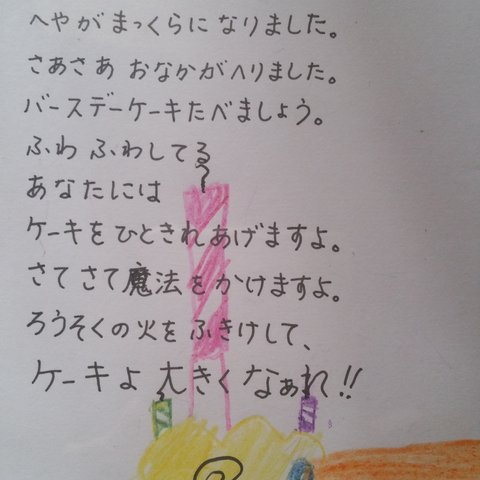 へやがまっくらになりました。
さあさあ おなかがへりました。
バースデーケーキたべましょう。
ふわ ふわしてる
あなたには
ケーキをひときれあげますよ。
さて さて魔法をかけますよ。
ろうそくの火をふきけして、
ケーキよ 大きくなぁれ!!